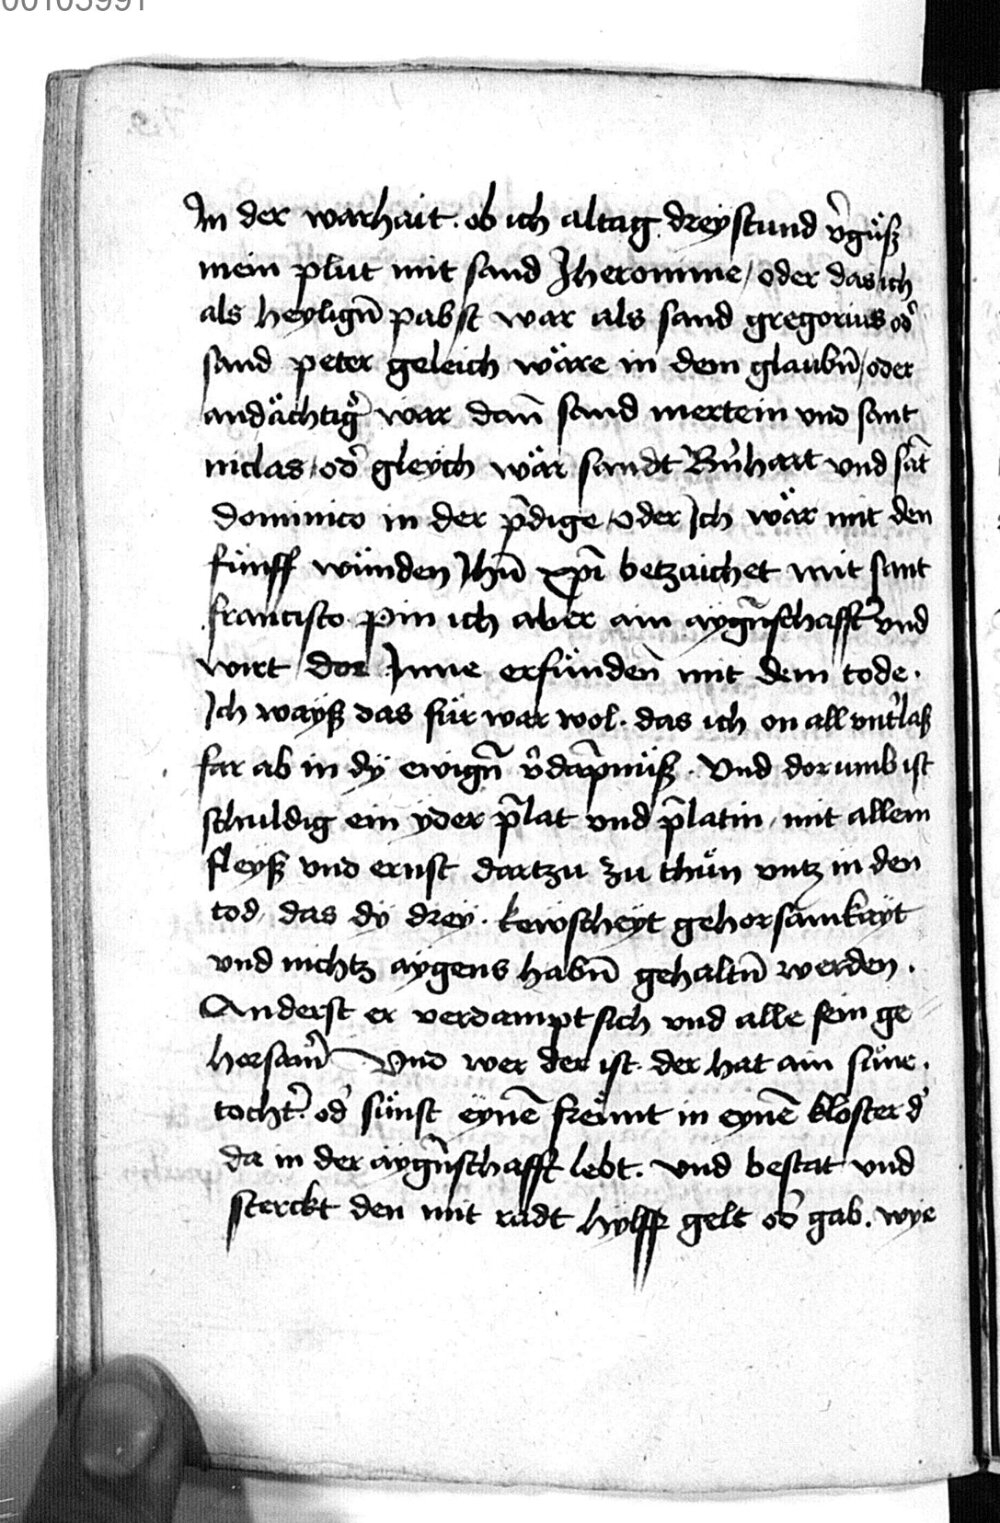 00103991
In der warhait. ob ich altag dreystund v̓güß
mein plut mit sand Jheronime / oder das ich
als heylign̄ pabst war als sand gregorius od̓
sand peter geleich wäre in dem glaubn̄ / oder
andächtig̓ war dan̄ sand mertein vnd sant
niclas / od̓ gleych wär sandt Bn̓hart vnd sāt
dominico in der p̄dige / oder Ich wär mit den
fünff wünden Jhū xp̄i betzaichet mit sant
francisco. pin ich aber ain aygn̄schafft̓ vnd
wirt dor Jnne erfünden̄ mit dem tode.
Ich wayß das für war wol. das ich on all vnt̓laß
far ab in dÿ ewign̄ v̓dāpnüß. Vnd dorumb ist
schuldig ein yder p̄lat vnd p̄latin / mit allem
fleyß vnd ernst dartzu zu thün vntz in den
tod / das dÿ dreÿ. kewscheyt gehorsamkayt
vnd nichtz aygens habn̄ gehaltn̄ werden.
Anderst er verdampt sich vnd alle sein ge
horsam̓ Vnd wer der ist. der hat ain süne.
tocht̓. od̓ sünst eÿnē freünt in eynē kloster d̓
da in der aygn̄schafft lebt. vnd bestat vnd
sterckt den mit radt hylff gelt od̓ gab. wye